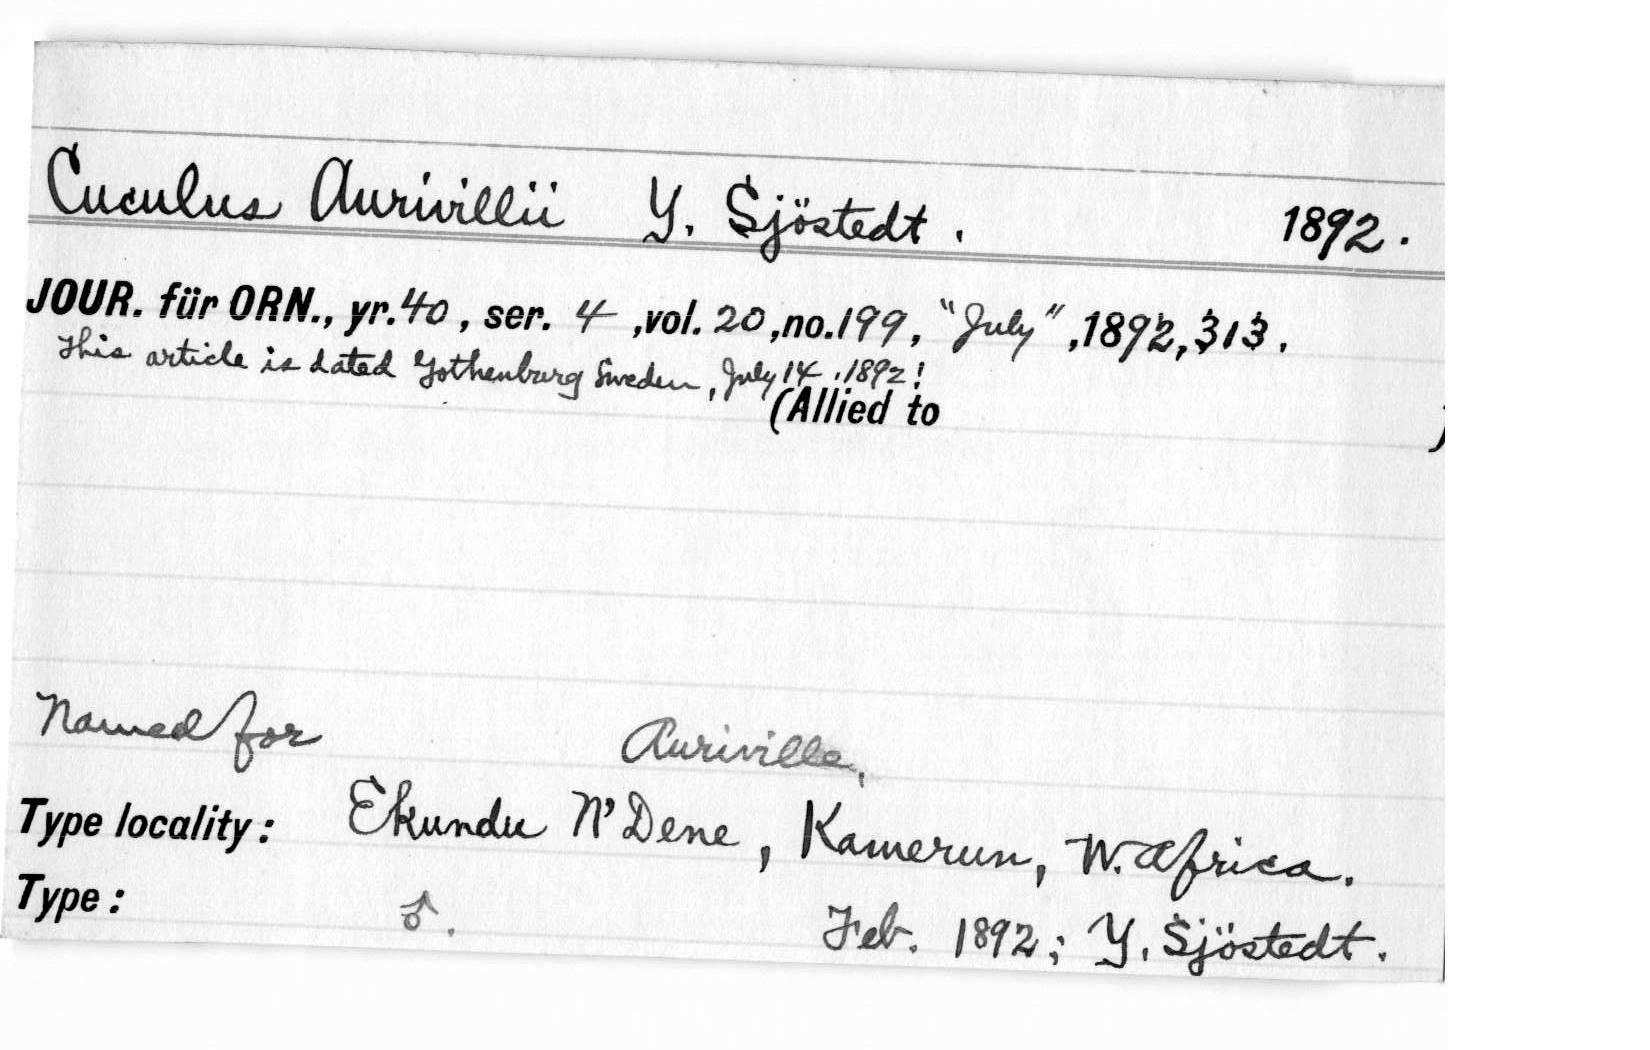 Cuculus Aurivillii Y. Sjöstedt. 1892.
JOUR. für ORN., yr. 40, ser. 4, vol. 20, no. 199, "July", 1892, 313.
This article is dated Gothenburg Sweden, July 14, 1892!
(Allied to )
Named for Auriville.
Type locality: Ekundu N'Dene, Kamerun, W. Africa.
Type: ♂. Feb. 1892; Y. Sjöstedt.